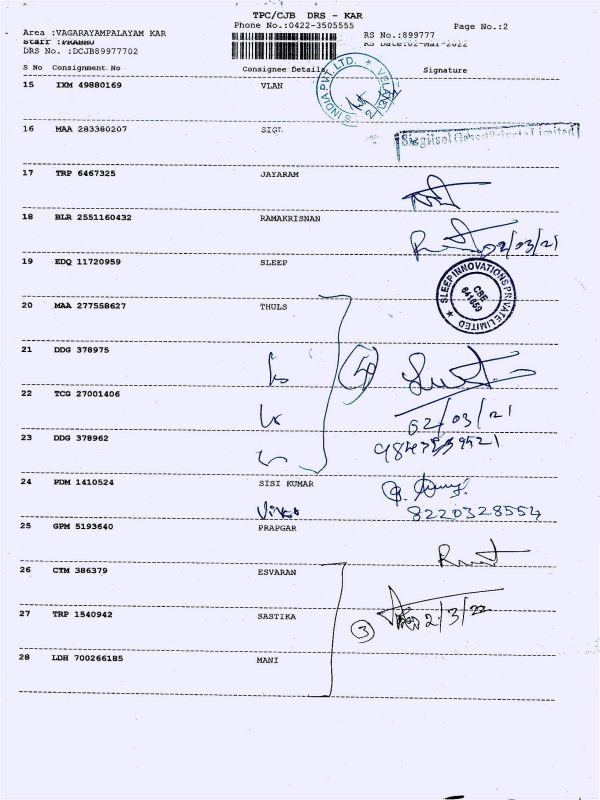 TPC/CJB DRS - KAR
Phone No.:0422-3505555
Page No.:2
Area :VAGARAYAMPALAYAM KAR
RS No.:899777
Staff :PRABHU
RS Date:02-Mar-2022
DRS No. :DCJB89977702
S No Consignment No Consignee Details Signature
15 IXM 49880169 VLAN
S INDIA PVT. LTD. *
16 MAA 283380207 SIGL
17 TRP 6467325 JAYARAM
18 BLR 2551160432 RAMAKRISNAN
02/03/21
19 EDQ 11720959 SLEEP
SLEEP INNOVATIONS PRIVATE LIMITED
CBE
641659
20 MAA 277558627 THULS
21 DDG 378975
22 TCG 27001406
02/03/21
23 DDG 378962
24 PDM 1410524 SISI KUMAR
8220328554
25 GPM 5193640 PRAPGAR
26 CTM 386379 ESVARAN
27 TRP 1540942 SASTIKA
3 2/3/22
28 LDH 700266185 MANI